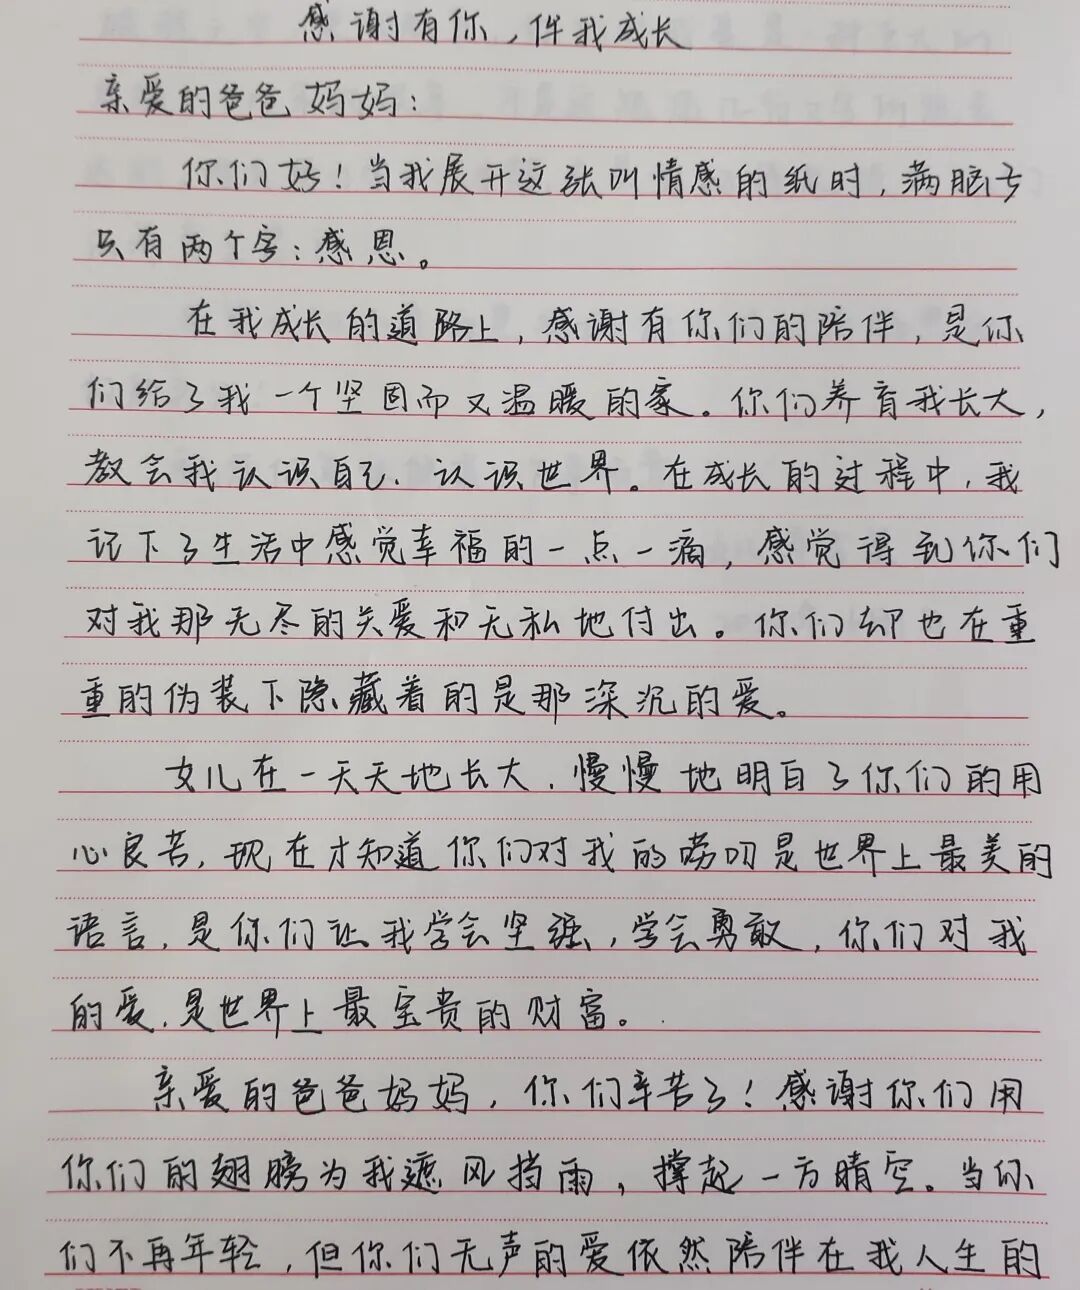 感谢有你，伴我成长
亲爱的爸爸妈妈：
你们好！当我展开这张叫情感的纸时，满脑子
只有两个字：感恩。
在我成长的道路上，感谢有你们的陪伴，是你
们给了我一个坚固而又温暖的家。你们养育我长大，
教会我认识自己、认识世界。在成长的过程中，我
记下了生活中感觉幸福的一点一滴，感觉得到你们
对我那无尽的关爱和无私地付出。你们却也在重
重的伪装下隐藏着的是那深沉的爱。
女儿在一天天地长大，慢慢地明白了你们的用
心良苦，现在才知道你们对我的唠叨是世界上最美的
语言，是你们让我学会坚强，学会勇敢，你们对我
的爱，是世界上最宝贵的财富。
亲爱的爸爸妈妈，你们辛苦了！感谢你们用
你们的翅膀为我遮风挡雨，撑起一方晴空。当你
们不再年轻，但你们无声的爱依然陪伴在我人生的